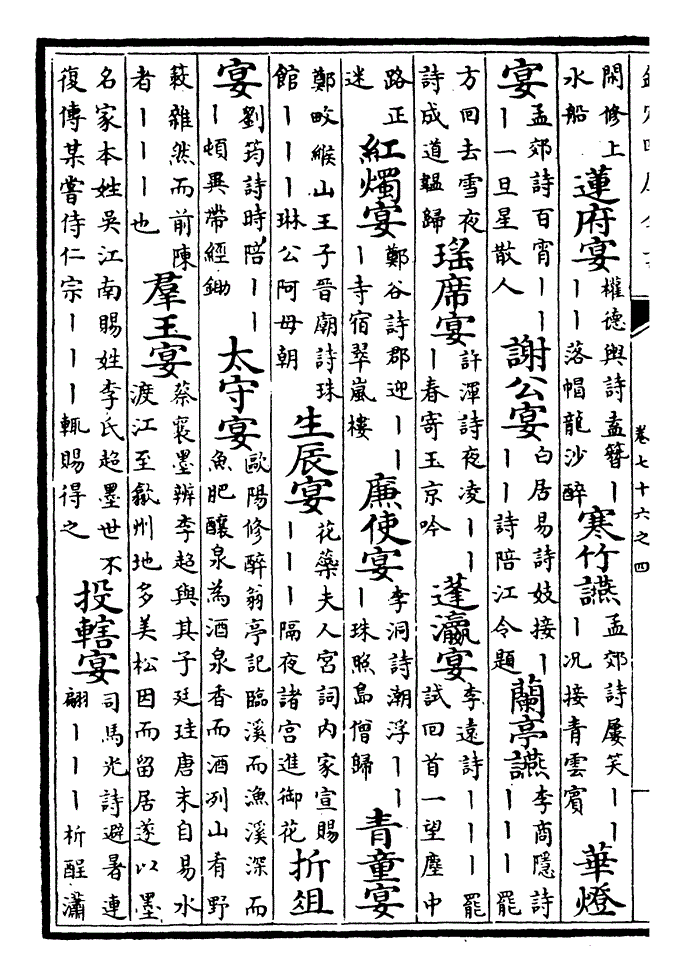 卷七十六之四
閑修上
水船
蓮府宴
權德輿詩盍簪丨
丨丨落帽龍沙醉
寒竹讌
孟郊詩屢笑丨丨
丨况接青雲賓
華燈
宴
孟郊詩百宵丨丨
丨一旦星散人
謝公宴
白居易詩妓接丨
丨丨詩陪江令題
蘭亭讌
李商隱詩
丨丨丨罷
方回去雪夜
詩成道韞歸
瑶席宴
許渾詩夜凌丨丨
丨春寄玉京吟
蓬瀛宴
李遠詩丨丨丨罷
試回首一望塵中
路正
迷
紅燭宴
鄭谷詩郡迎丨丨
丨寺宿翠嵐樓
廉使宴
李洞詩潮浮丨丨
丨珠照島僧歸
青童宴
鄭畋緱山王子晉廟詩珠
館丨丨丨琳公阿母朝
生辰宴
花藥夫人宮詞内家宣賜
丨丨丨隔夜諸宮進御花
折俎
宴
劉筠詩時陪丨丨
丨頓異帶經鋤
太守宴
歐陽修醉翁亭記臨溪而漁溪深而
魚肥釀泉為酒泉香而酒冽山有野
蔌雜然而前陳
者丨丨丨也
羣玉宴
蔡襄墨辨李超與其子廷珪唐末自易水
渡江至歙州地多美松因而留居遂以墨
名家本姓吳江南賜姓李氏超墨世不
復傳某嘗侍仁宗丨丨丨輒賜得之
投轄宴
司馬光詩避暑連
翩丨丨丨析酲瀟